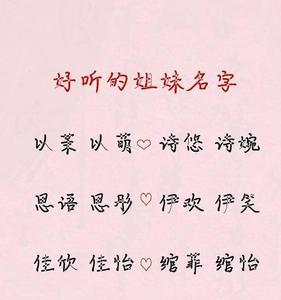 好听的姐妹名字
以菜 以萌♡诗悠 诗婉
恩语 恩彤♡伊欢 伊笑
佳欣 佳怡♡绾菲 绾怡